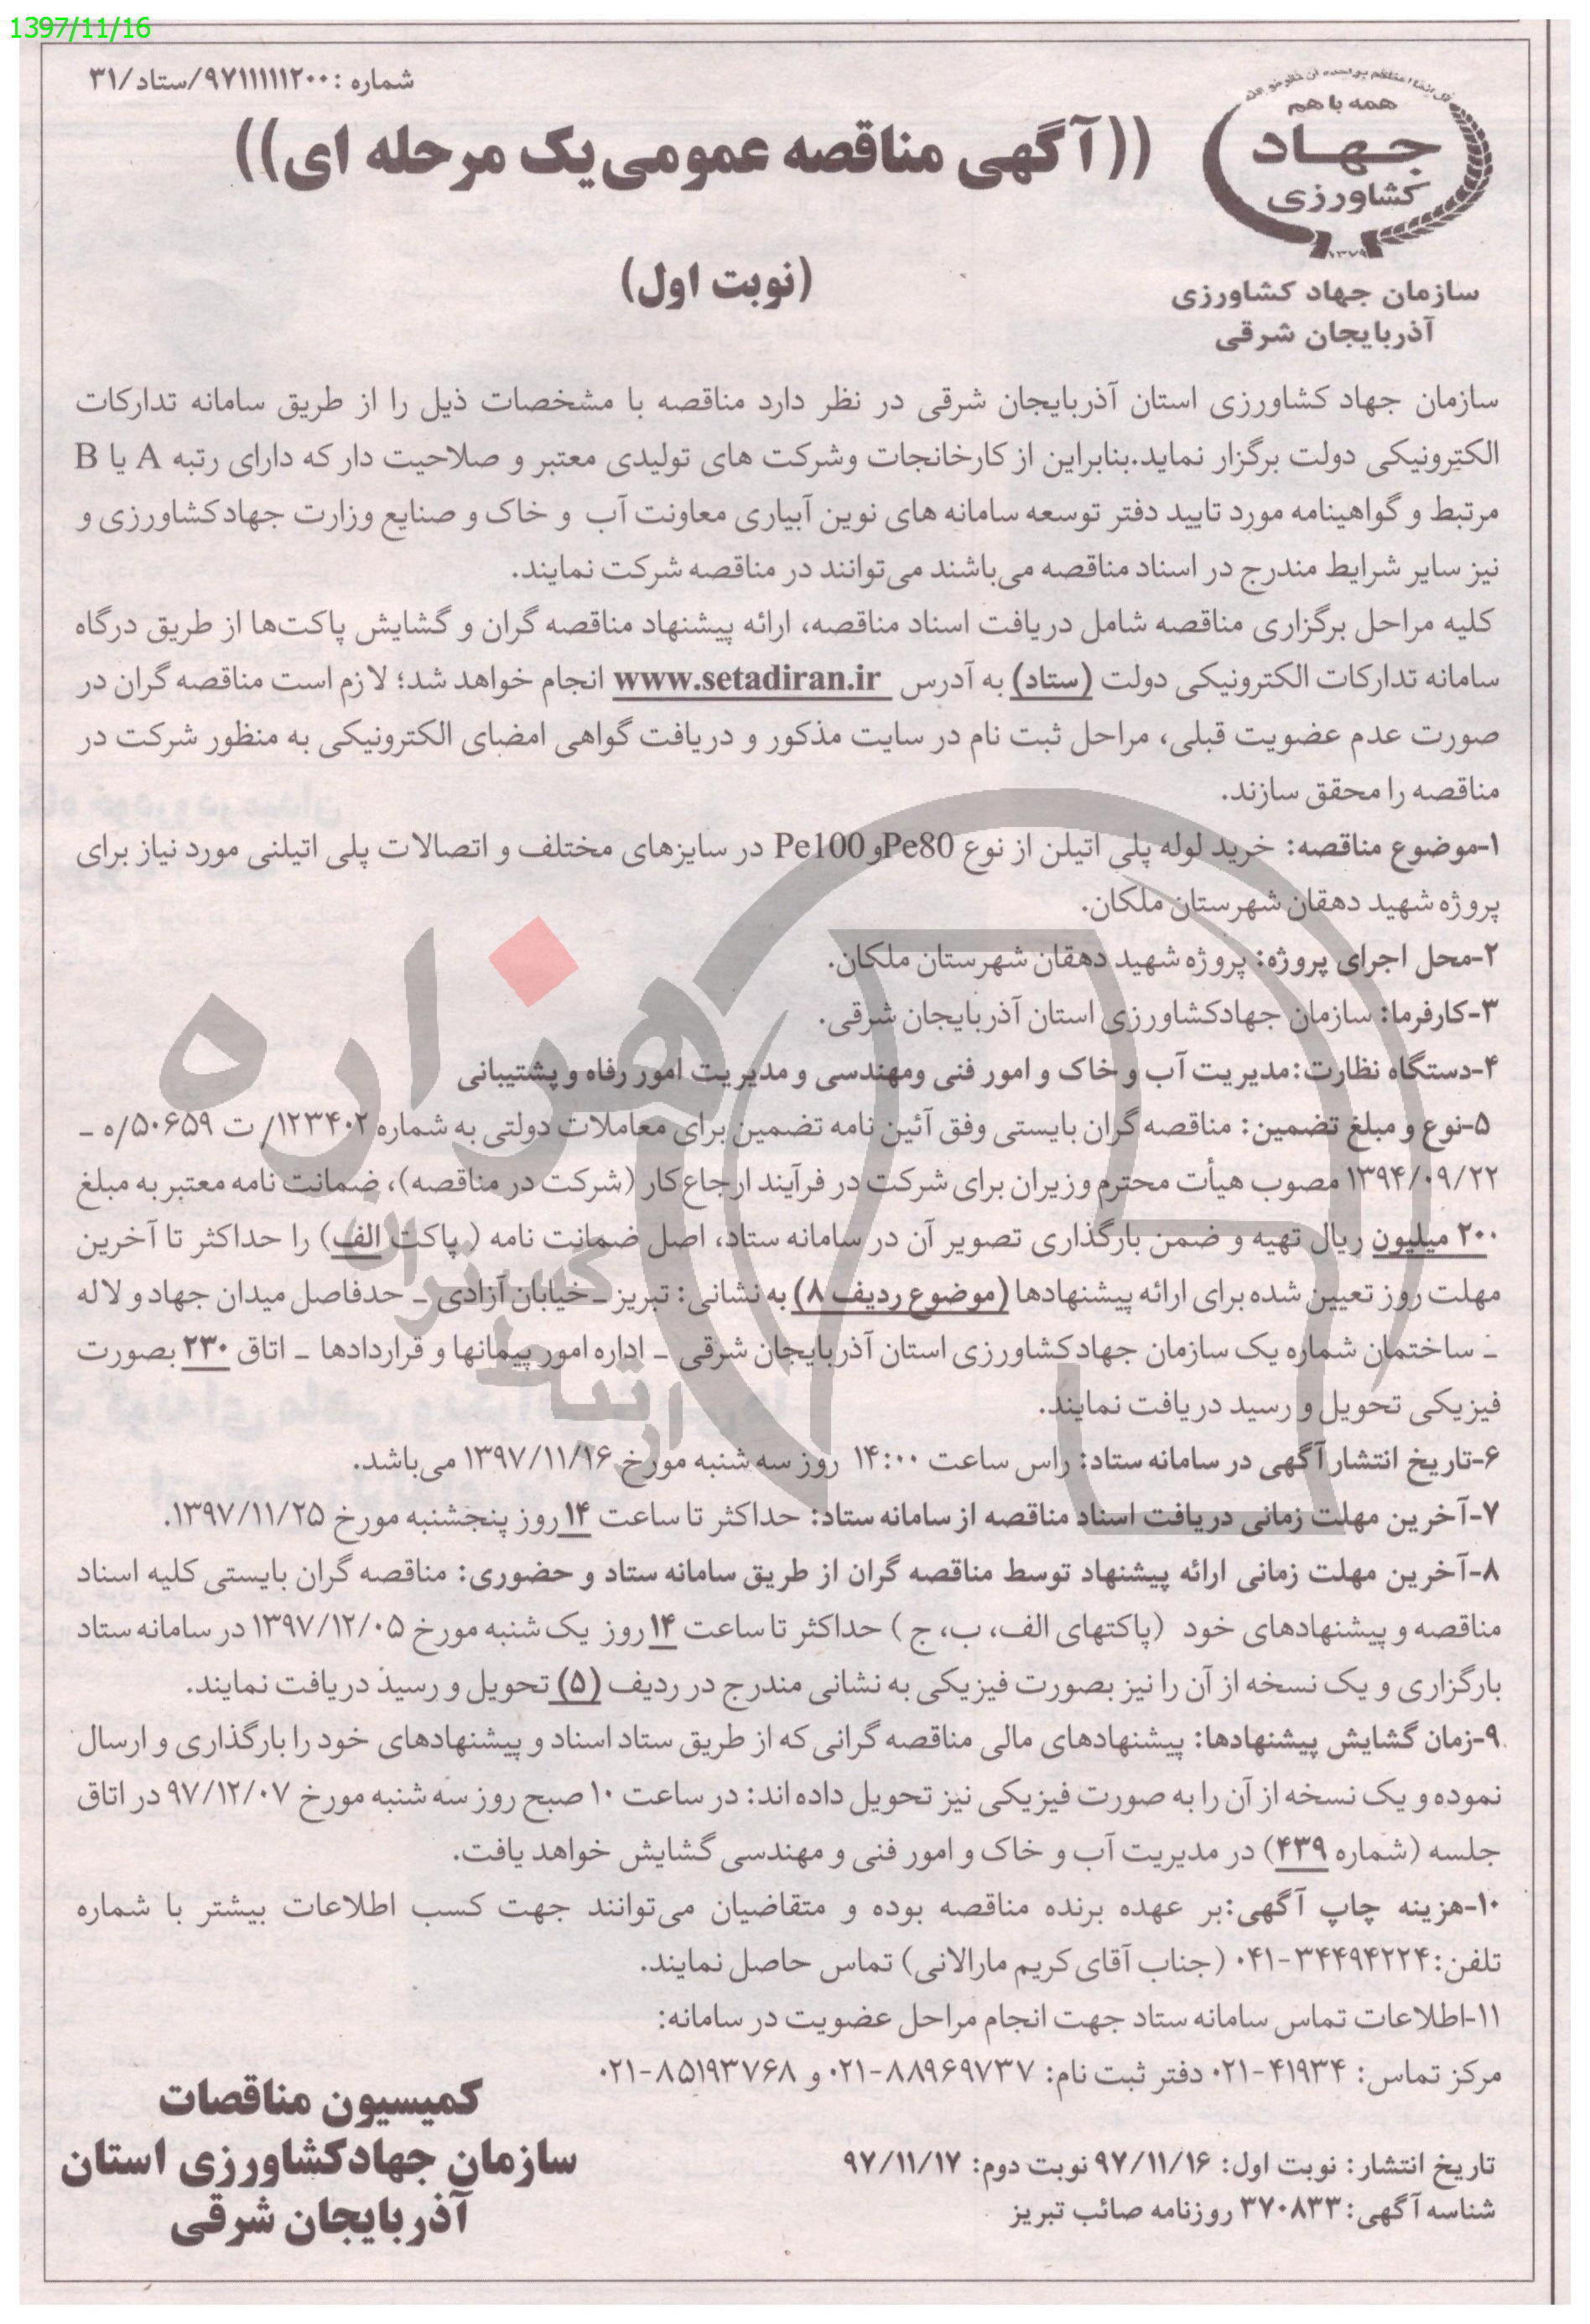 1397/11/16
شماره : ۹۷۱۱۱۱۱۲۰۰/ستاد/۳۱
همه با هم
جهاد
کشاورزی
۱۳۷۹
((آگهی مناقصه عمومی یک مرحله ای))
(نوبت اول)
سازمان جهاد کشاورزی
آذربایجان شرقی
سازمان جهاد کشاورزی استان آذربایجان شرقی در نظر دارد مناقصه با مشخصات ذیل را از طریق سامانه تدارکات
الکترونیکی دولت برگزار نماید.بنابراین از کارخانجات وشرکت های تولیدی معتبر و صلاحیت دار که دارای رتبه A یا B
مرتبط و گواهینامه مورد تایید دفتر توسعه سامانه های نوین آبیاری معاونت آب و خاک و صنایع وزارت جهادکشاورزی و
نیز سایر شرایط مندرج در اسناد مناقصه می‌باشند می‌توانند در مناقصه شرکت نمایند.
کلیه مراحل برگزاری مناقصه شامل دریافت اسناد مناقصه، ارائه پیشنهاد مناقصه گران و گشایش پاکت‌ها از طریق درگاه
سامانه تدارکات الکترونیکی دولت (ستاد) به آدرس www.setadiran.ir انجام خواهد شد؛ لازم است مناقصه گران در
صورت عدم عضویت قبلی، مراحل ثبت نام در سایت مذکور و دریافت گواهی امضای الکترونیکی به منظور شرکت در
مناقصه را محقق سازند.
۱-موضوع مناقصه: خرید لوله پلی اتیلن از نوع Pe80وPe100 در سایزهای مختلف و اتصالات پلی اتیلنی مورد نیاز برای
پروژه شهید دهقان شهرستان ملکان.
۲-محل اجرای پروژه: پروژه شهید دهقان شهرستان ملکان.
۳-کارفرما: سازمان جهادکشاورزی استان آذربایجان شرقی.
۴-دستگاه نظارت:مدیریت آب و خاک و امور فنی ومهندسی و مدیریت امور رفاه و پشتیبانی
۵-نوع و مبلغ تضمین: مناقصه گران بایستی وفق آئین نامه تضمین برای معاملات دولتی به شماره ۱۲۳۴۰۲/ ت ۵۰۶۵۹/ه ـ
۱۳۹۴/۰۹/۲۲ مصوب هیأت محترم وزیران برای شرکت در فرآیند ارجاع کار (شرکت در مناقصه)، ضمانت نامه معتبر به مبلغ
۲۰۰ میلیون ریال تهیه و ضمن بارگذاری تصویر آن در سامانه ستاد، اصل ضمانت نامه ( پاکت الف) را حداکثر تا آخرین
مهلت روز تعیین شده برای ارائه پیشنهادها (موضوع ردیف ۸) به نشانی: تبریز ـ خیابان آزادی ـ حدفاصل میدان جهاد و لاله
ـ ساختمان شماره یک سازمان جهادکشاورزی استان آذربایجان شرقی ـ اداره امور پیمانها و قراردادها ـ اتاق ۲۳۰ بصورت
فیزیکی تحویل و رسید دریافت نمایند.
۶-تاریخ انتشار آگهی در سامانه ستاد: راس ساعت ۱۴:۰۰ روز سه شنبه مورخ ۱۳۹۷/۱۱/۱۶ می‌باشد.
۷-آخرین مهلت زمانی دریافت اسناد مناقصه از سامانه ستاد: حداکثر تا ساعت ۱۴ روز پنجشنبه مورخ ۱۳۹۷/۱۱/۲۵.
۸-آخرین مهلت زمانی ارائه پیشنهاد توسط مناقصه گران از طریق سامانه ستاد و حضوری: مناقصه گران بایستی کلیه اسناد
مناقصه و پیشنهادهای خود (پاکتهای الف، ب، ج ) حداکثر تا ساعت ۱۴ روز یک شنبه مورخ ۱۳۹۷/۱۲/۰۵ در سامانه ستاد
بارگزاری و یک نسخه از آن را نیز بصورت فیزیکی به نشانی مندرج در ردیف (۵) تحویل و رسید دریافت نمایند.
۹-زمان گشایش پیشنهادها: پیشنهادهای مالی مناقصه گرانی که از طریق ستاد اسناد و پیشنهادهای خود را بارگذاری و ارسال
نموده و یک نسخه از آن را به صورت فیزیکی نیز تحویل داده اند: در ساعت ۱۰ صبح روز سه شنبه مورخ ۹۷/۱۲/۰۷ در اتاق
جلسه (شماره ۴۳۹) در مدیریت آب و خاک و امور فنی و مهندسی گشایش خواهد یافت.
۱۰-هزینه چاپ آگهی:بر عهده برنده مناقصه بوده و متقاضیان می‌توانند جهت کسب اطلاعات بیشتر با شماره
تلفن: ۳۴۴۹۴۲۲۴-۰۴۱ (جناب آقای کریم مارالانی) تماس حاصل نمایند.
۱۱-اطلاعات تماس سامانه ستاد جهت انجام مراحل عضویت در سامانه:
مرکز تماس: ۴۱۹۳۴-۰۲۱ دفتر ثبت نام: ۸۸۹۶۹۷۳۷-۰۲۱ و ۸۵۱۹۳۷۶۸-۰۲۱
تاریخ انتشار: نوبت اول: ۹۷/۱۱/۱۶ نوبت دوم: ۹۷/۱۱/۱۷
شناسه آگهی: ۳۷۰۸۳۳ روزنامه صائب تبریز
کمیسیون مناقصات
سازمان جهادکشاورزی استان
آذربایجان شرقی
هزاره